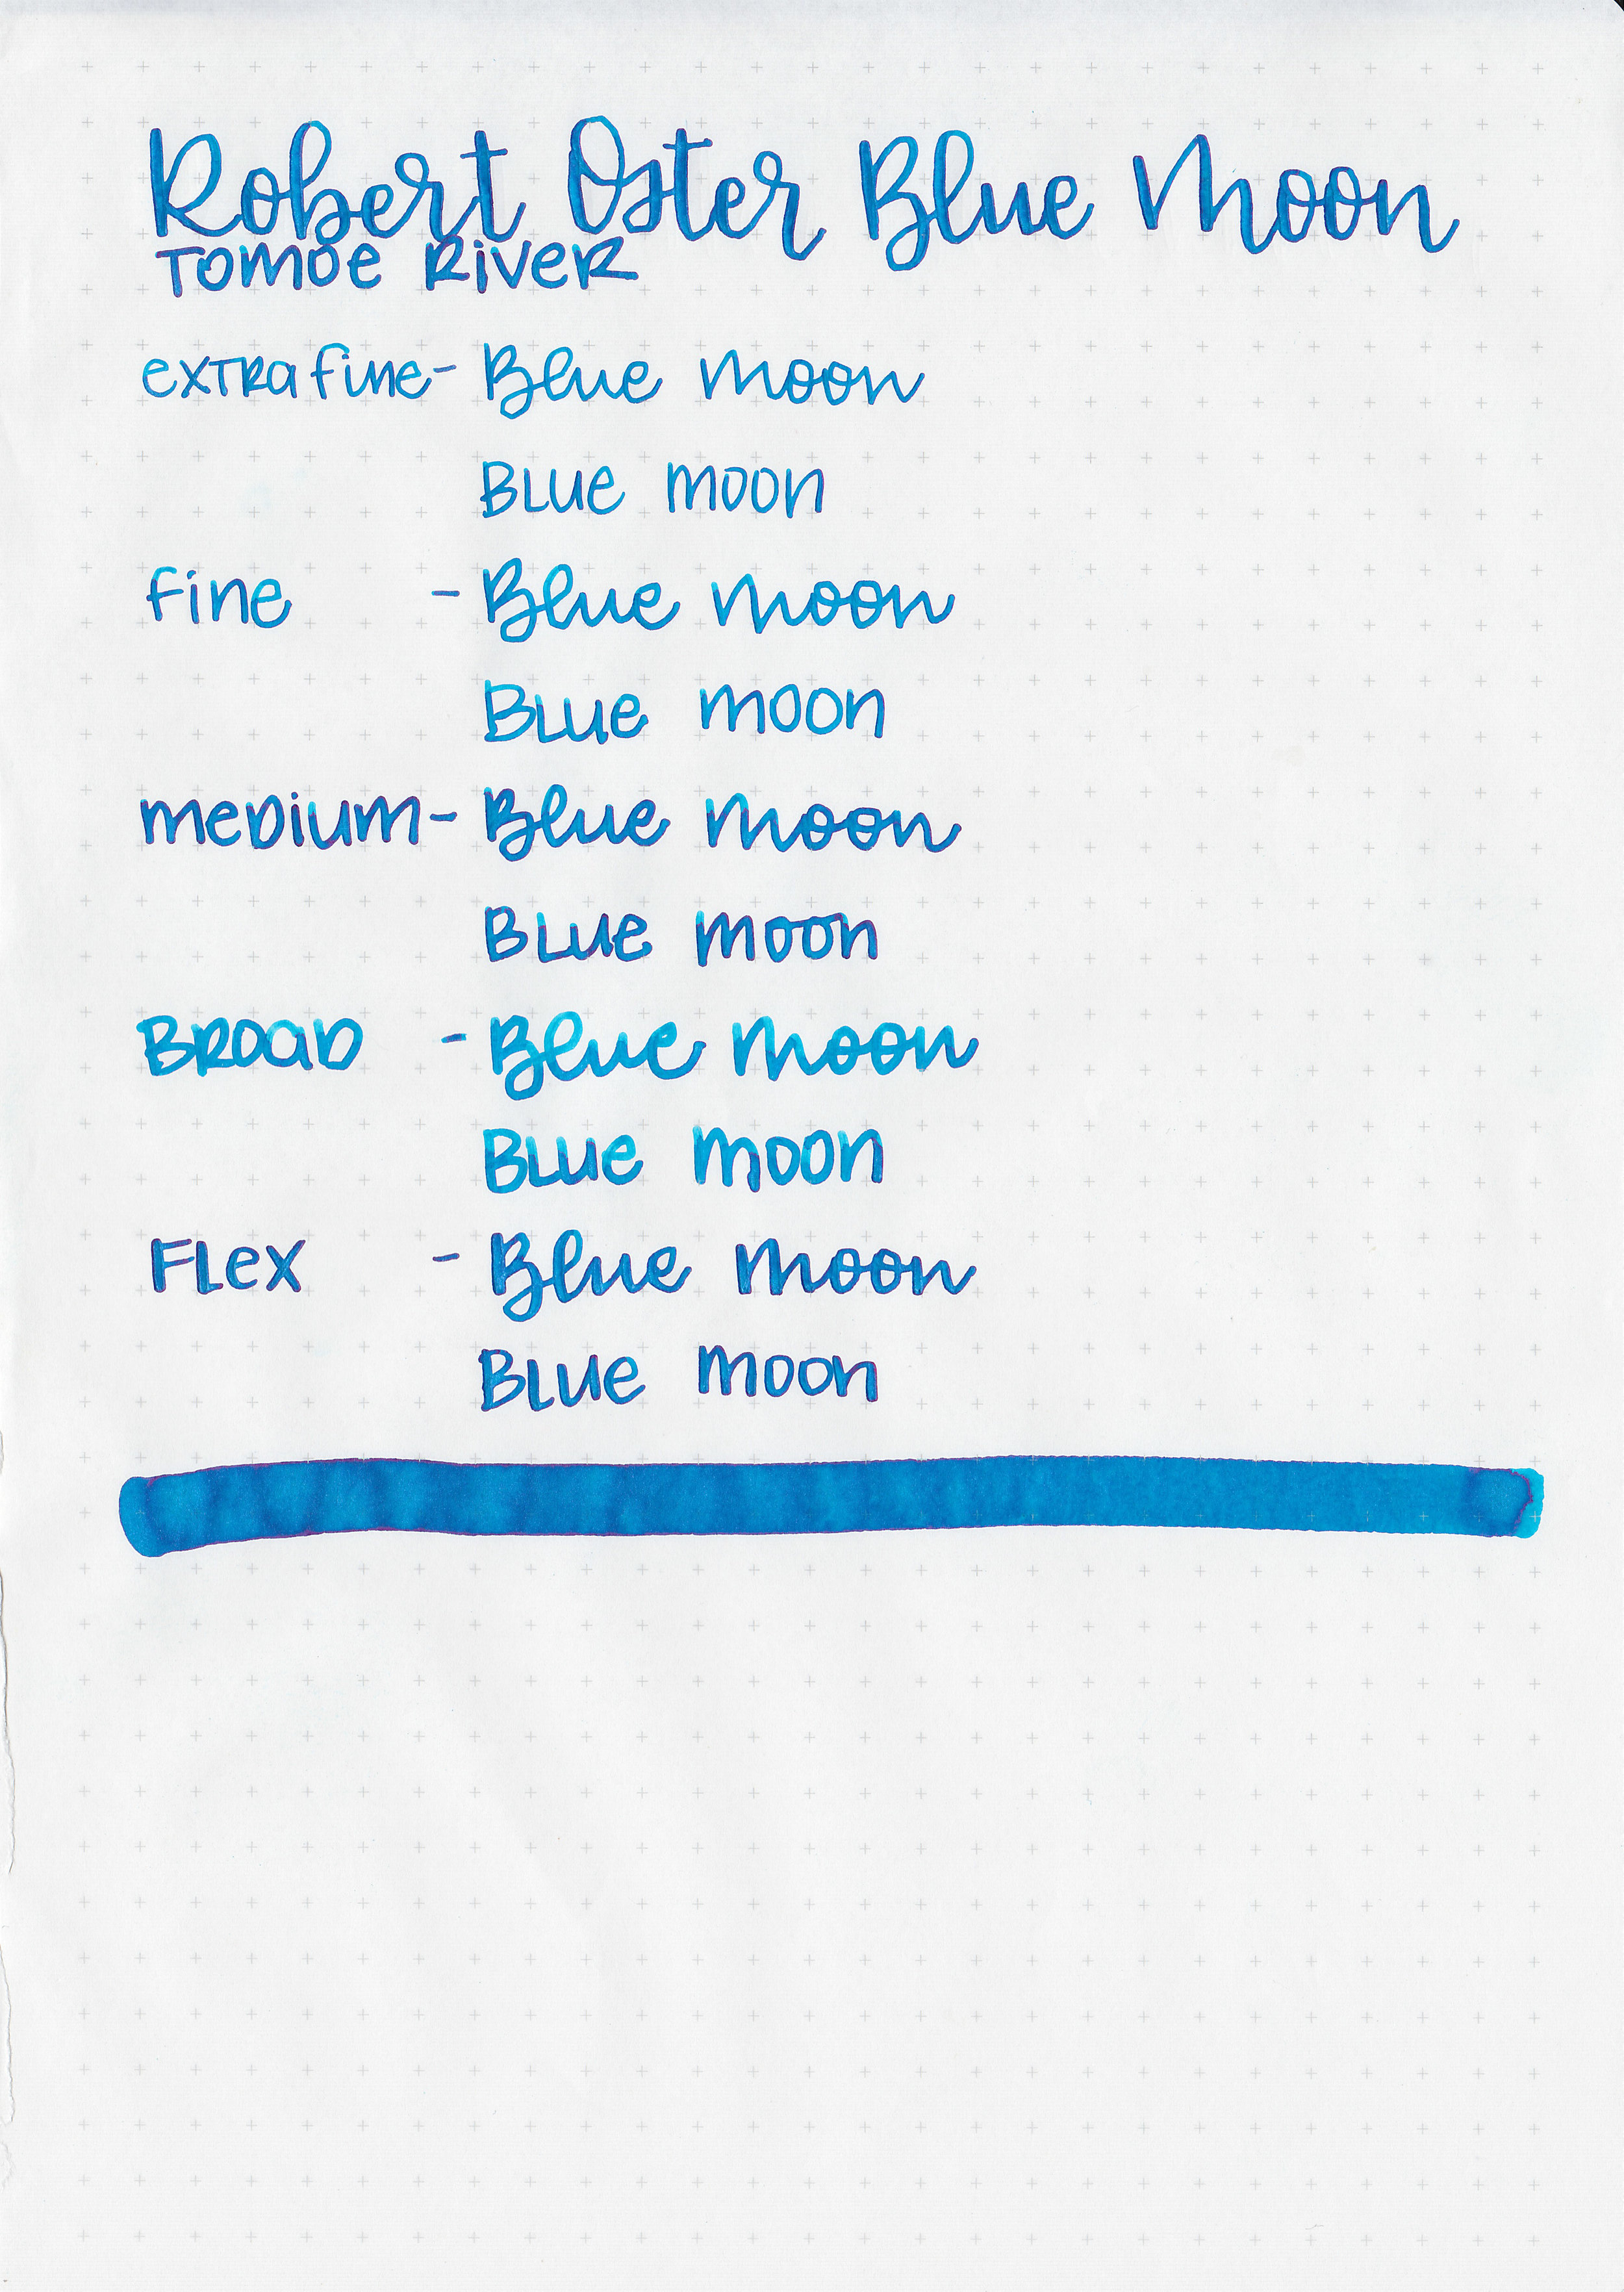 Robert Oster Blue Moon
Tomoe River
extra fine - Blue Moon
Blue Moon
fine - Blue Moon
Blue Moon
medium - Blue Moon
Blue Moon
Broad - Blue Moon
Blue Moon
Flex - Blue Moon
Blue Moon